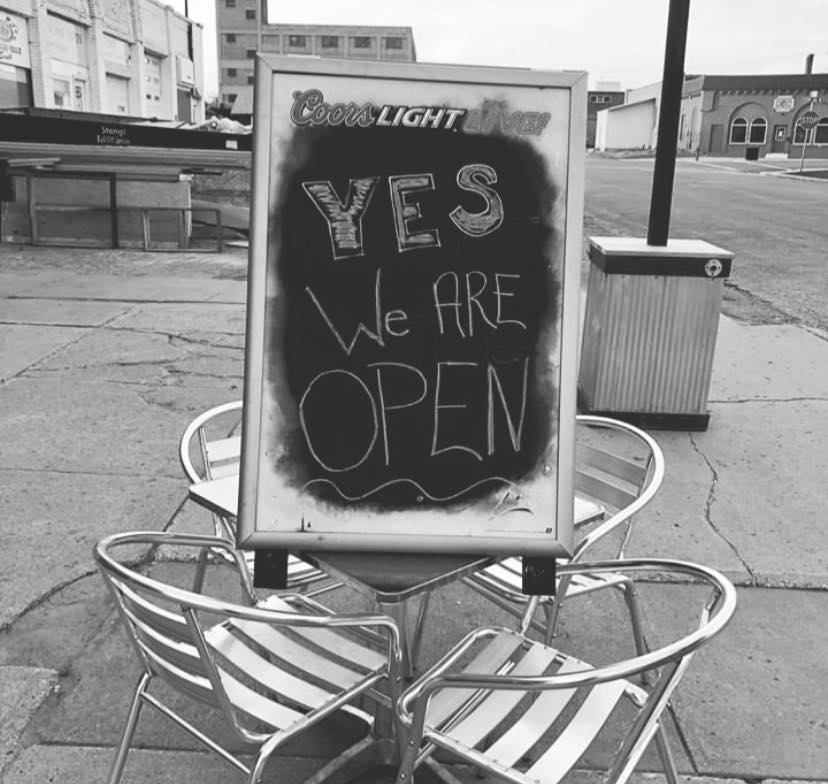 Coors LIGHT LIVE!
YES
We ARE
OPEN
STOP